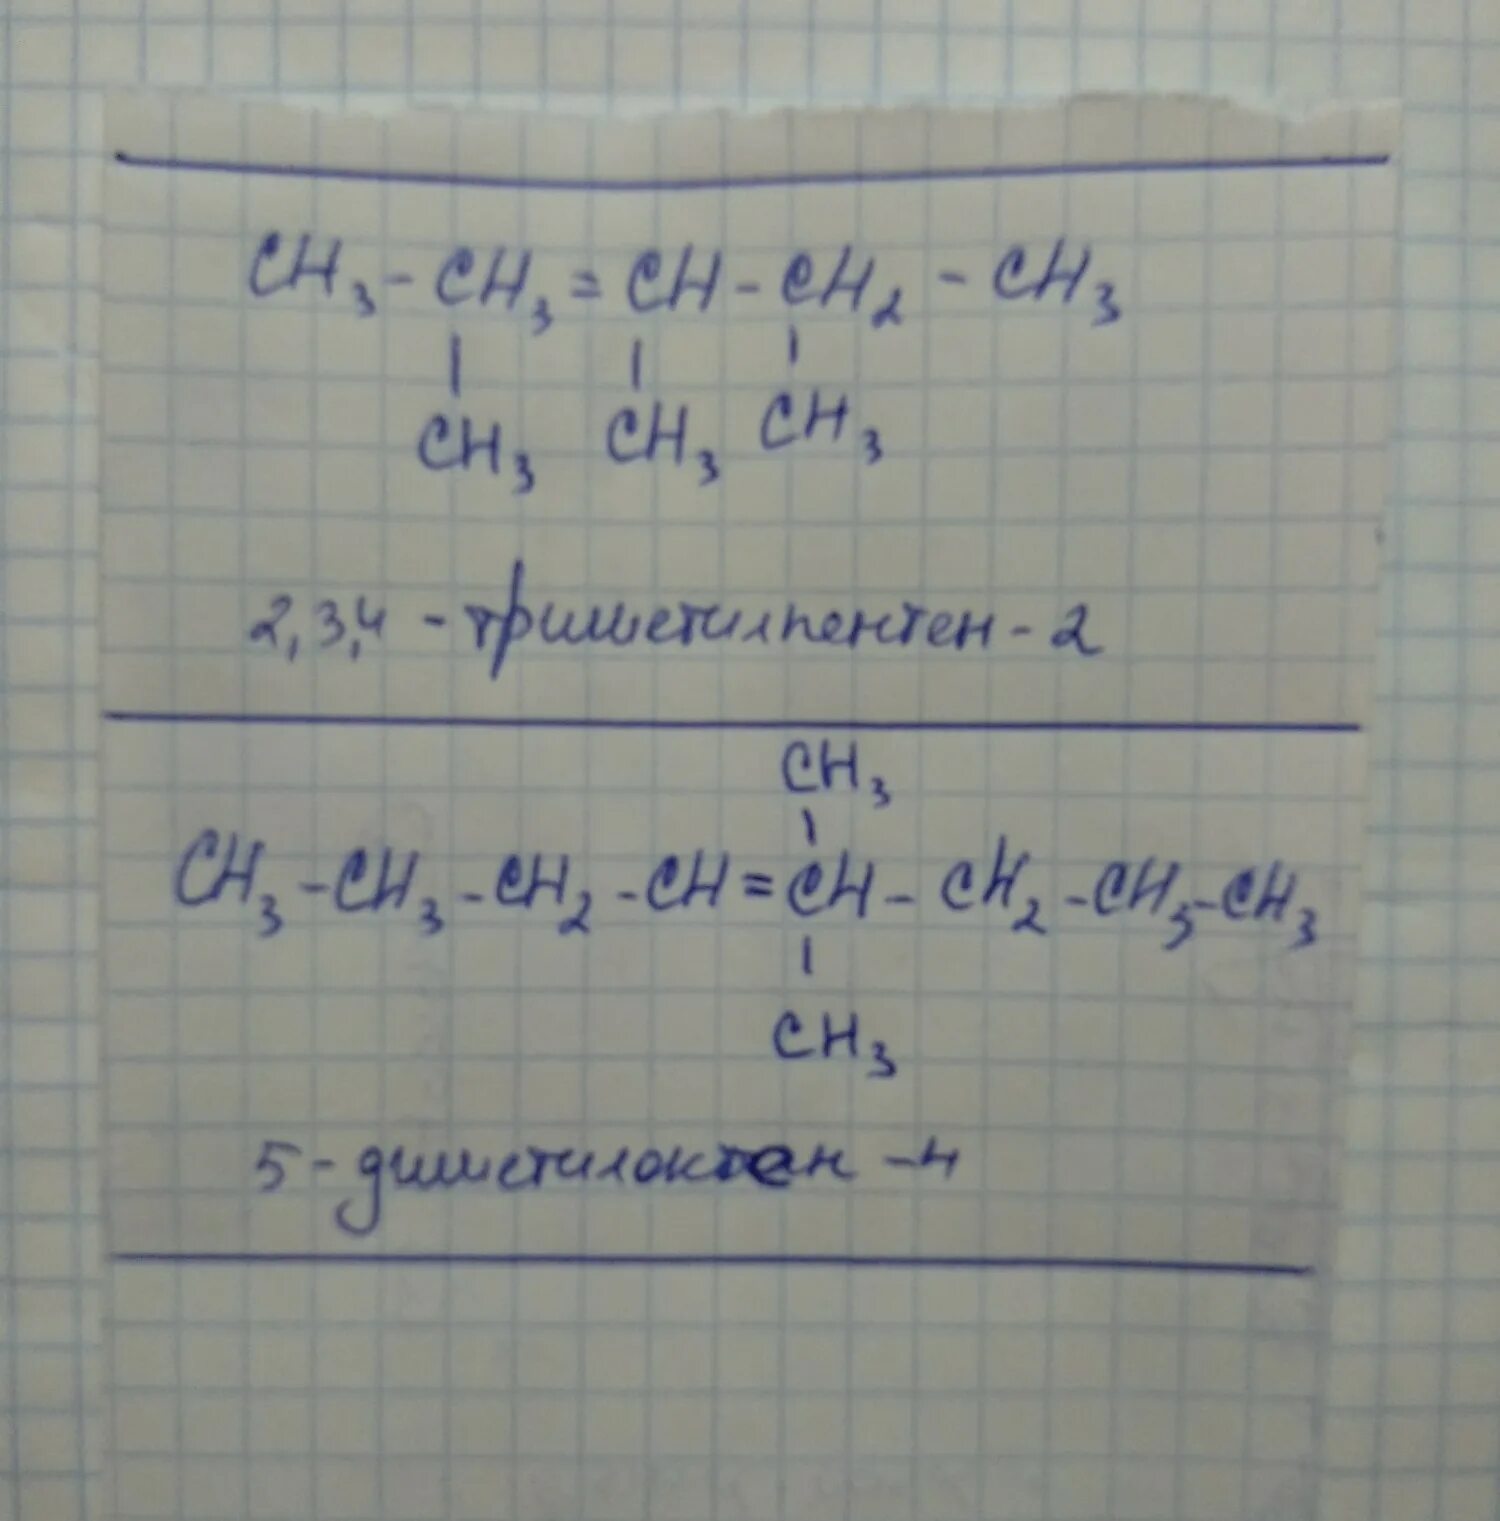 CH₃-CH₃=CH-CH₂-CH₃
CH₃ CH₃ CH₃
2,3,4-триметилпентен-2
CH₃
CH₃-CH₃-CH₂-CH=CH-CH₂-CH₃-CH₃
CH₃
5-диметилоктен-4